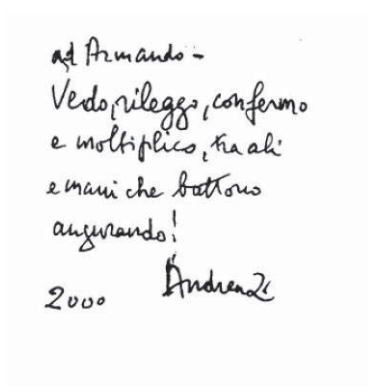 ad Armando -
Vedo, rileggo, confermo
e moltiplico, tra ali
e mani che battono
augurando!
2000